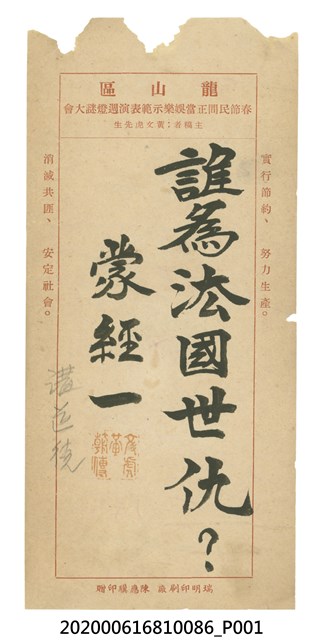 龍山區
春節民間正當娛樂示範表演週燈謎大會
主稿者：黃文虎先生
實行節約、 努力生產。
誰為法國世仇？
蒙經一
消滅共匪、 安定社會。
瑞明印刷廠 陳應彬印贈
202000616810086_P001